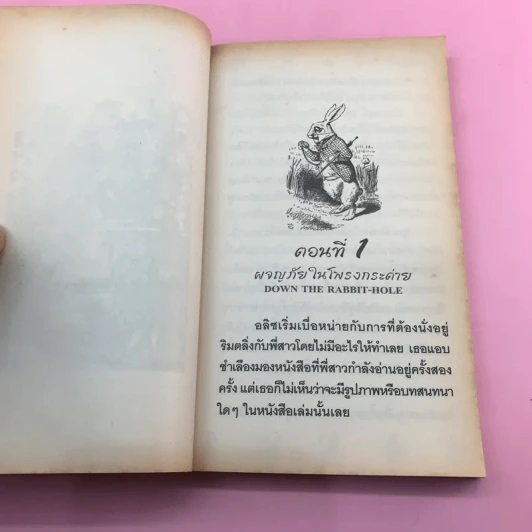 ตอนที่ 1
ผจญภัยในโพรงกระต่าย
DOWN THE RABBIT-HOLE
อลิซเริ่มเบื่อหน่ายกับการที่ต้องนั่งอยู่
ริมตลิ่งกับพี่สาวโดยไม่มีอะไรให้ทำเลย เธอแอบ
ชำเลืองมองหนังสือที่พี่สาวกำลังอ่านอยู่ครั้งสอง
ครั้ง แต่เธอก็ไม่เห็นว่าจะมีรูปภาพหรือบทสนทนา
ใดๆ ในหนังสือเล่มนั้นเลย